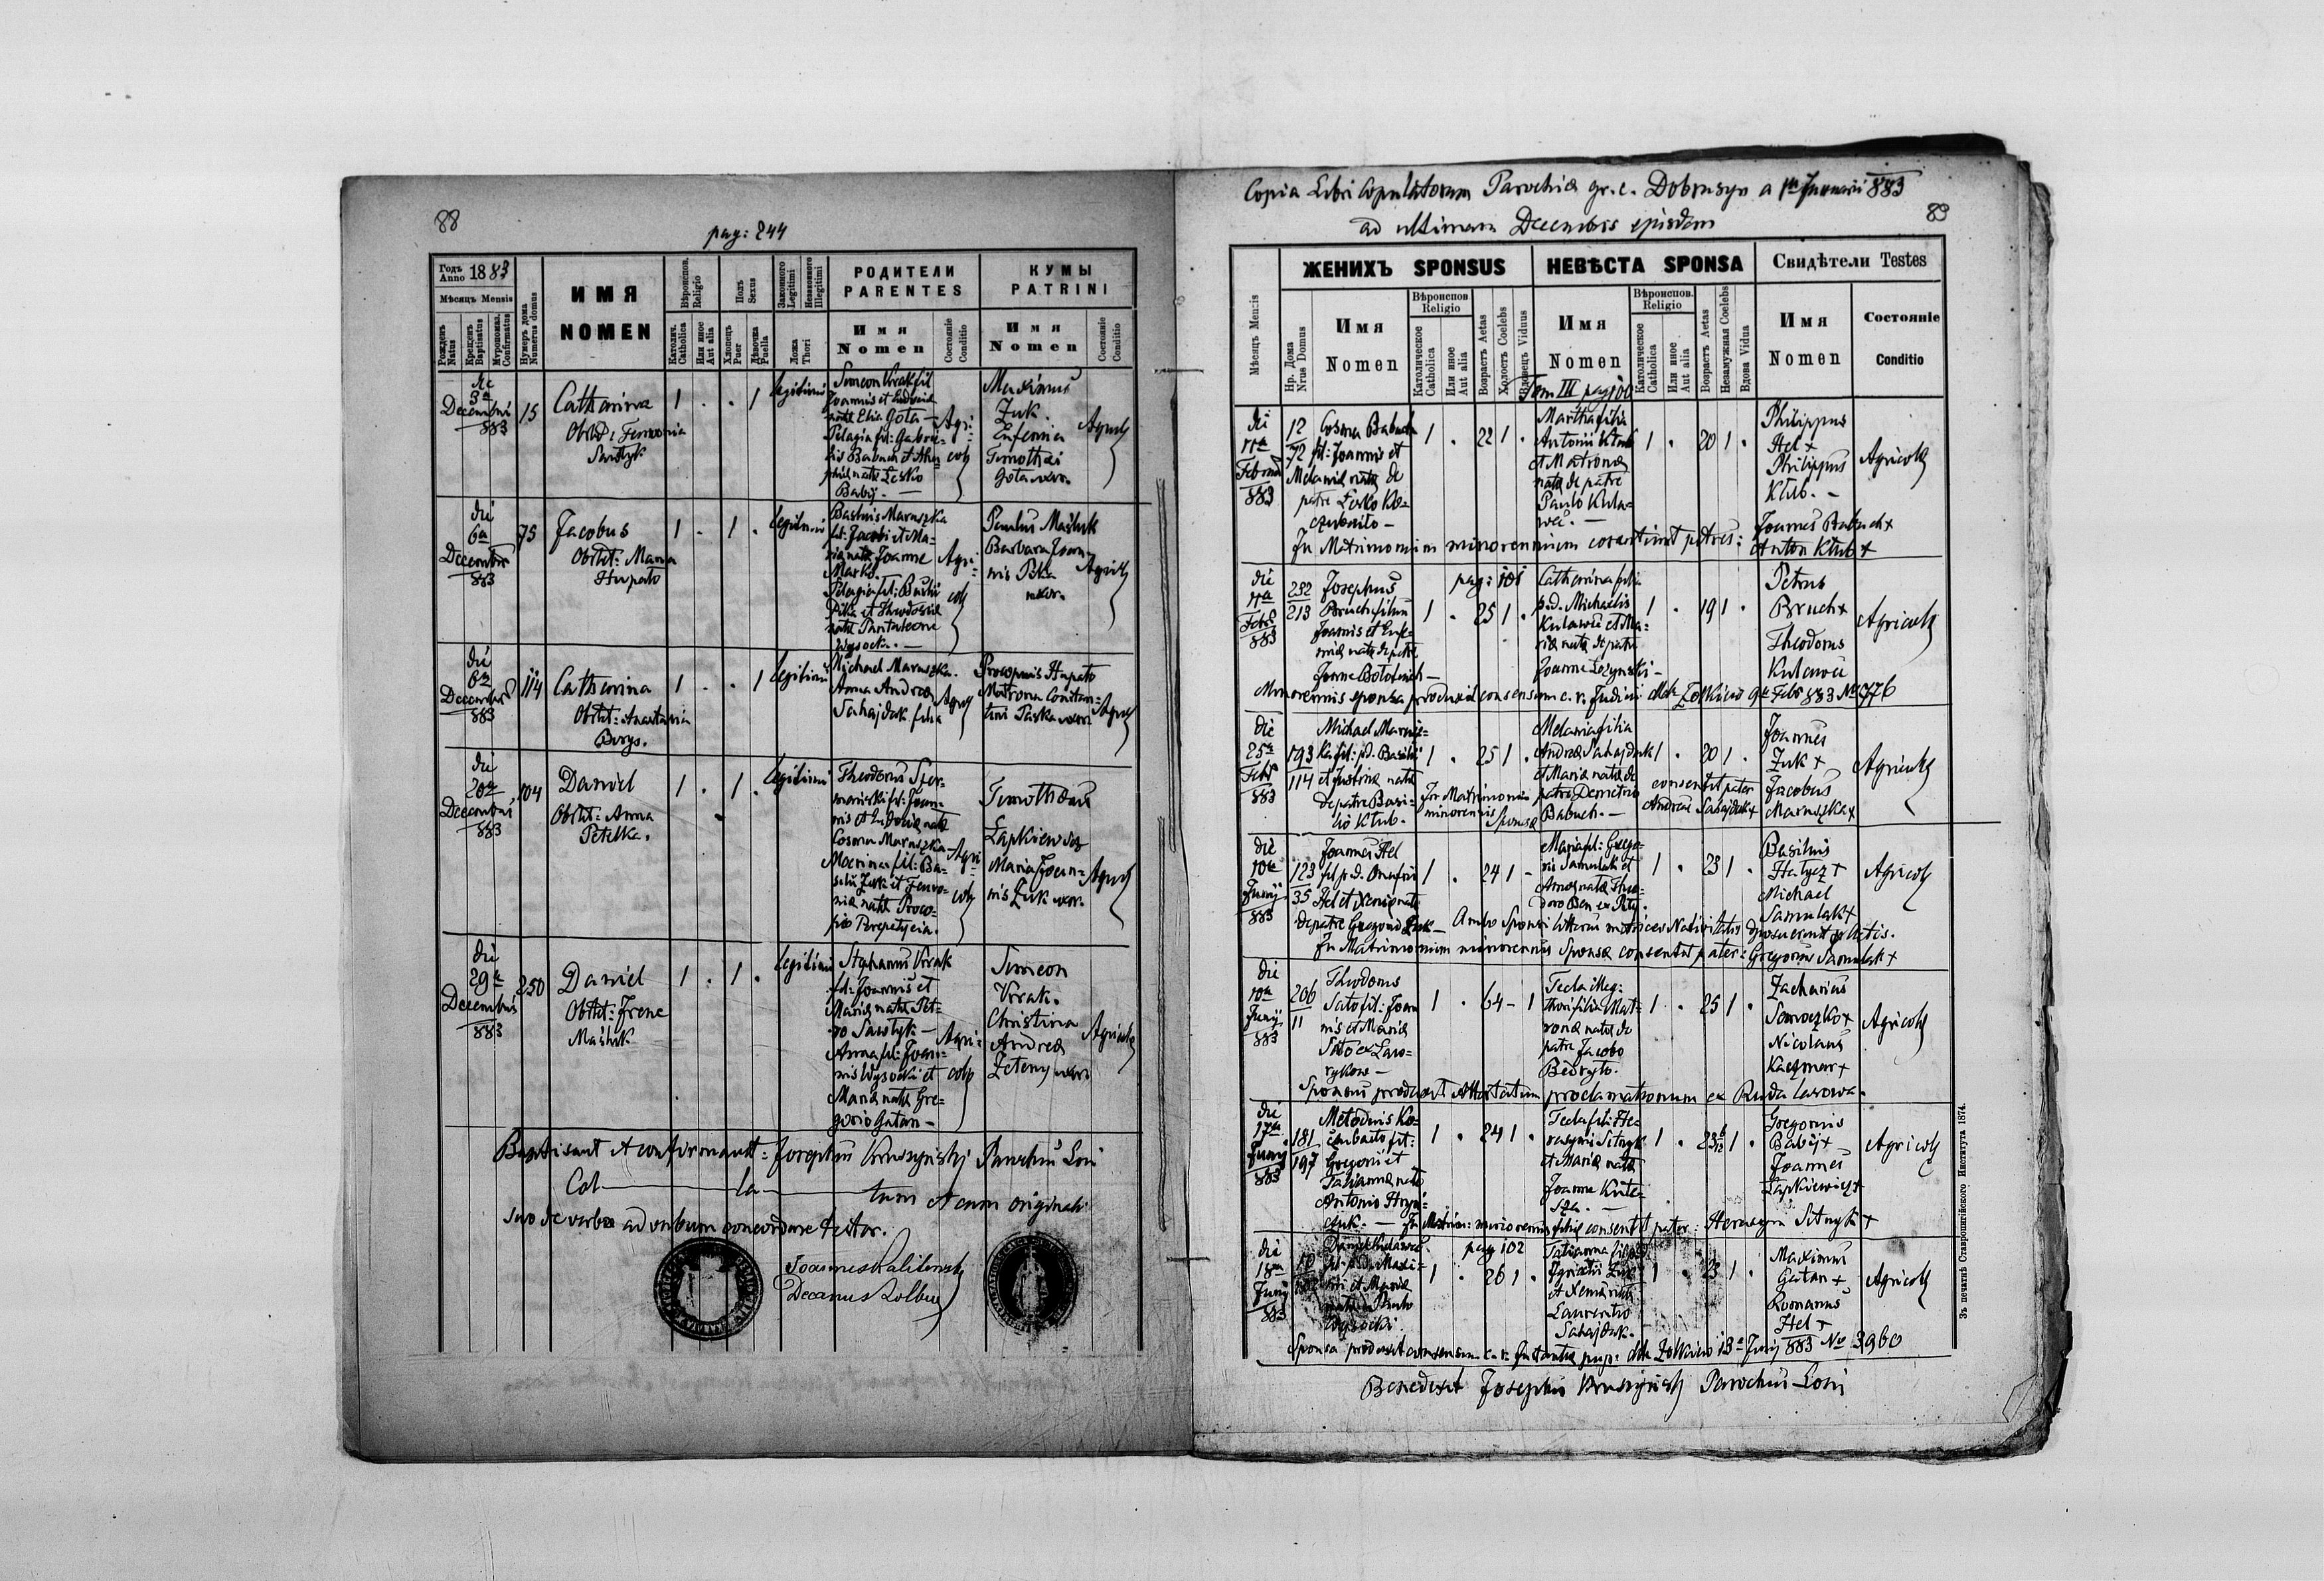 88
pag: 244
Годъ Anno 1883
Мѣсяцъ Mensis
Рожденъ Natus
Крещенъ Baptisatus
Мѵропомаз. Confirmatus
Нумеръ дома Numerus domus
ИМЯ
NOMEN
Вѣроиспов. Religio
Католич. Catholica
Или иное Aut alia
Полъ Sexus
Хлопецъ Puer
Дѣвочка Puella
Законного Legitimi
Незаконного Illegitimi
Ложа Thori
РОДИТЕЛИ
PARENTES
Имя
Nomen
Состояніе Conditio
КУМЫ
PATRINI
Имя
Nomen
Состояніе Conditio
die
3a
Decembris
883
15
Catharina
Obstet: Fenronia
1 . . 1
legitimi
Simeon Vrak fil
Joannis et Eudoxia
nata Elia Gota
Pelagia fil: Gabrie-
lis Babuch et Aha-
phia nata Lesko
Babij. —
Agri-
colae
Maximus
Zuk.
Eufemia
Timothei
Gota uxor.
Agricolae
die
6a
Decembris
883
75
Jacobus
Obstet: Maria
Hupało
1 . 1 .
legitimi
Basilius Maruszka
fil: Jacobi et Ma-
ria nata Joanne
Marko.
Pelagia fil: Basilii
Pika et Theodosia
nata Pantaleone
Wysocki. —
Agri-
colae
Paulus Maśluk
Barbara Joan-
nis Pika
uxor.
Agricolae
die
6a
Decembris
883
114
Catharina
Obstet: Anastasia
Borys.
1 . . 1
legitimi
Michael Maruszka.
Anna Andrea
Sahajdak filia
Agricolae
Procopius Hupało
Matrona Constan-
tini Paska uxor
Agricolae
die
20a
Decembris
883
104
Daniel
Obstet: Anna
Petelka.
1 . 1 .
legitimi
Theodorus
nis et Eudoxia nata
Cosma Maruszka
Marina fil: Ba-
silii Zuk et Fenro-
nia nata Proco-
pio Perepetycia.
Agri-
colae
Timotheus
Łapkiewicz
Maria Joan-
nis Zuk uxor.
Agricolae
die
29a
Decembris
883
250
Daniel
Obstet: Irene
Maśluk
1 . 1 .
legitimi
Stephanus Vrak
fil: Joannis et
Maria nata Pet-
ro Sawtyk —
Anna fil: Joan-
nis Wysocki et
Maria nata Gre-
gorio Gatan —
Agri-
colae
Simeon
Vrak.
Christina
Andrea
Zeteny uxor
Agricolae
Baptisavit et confirmavit: Josephus Kruszyński Parochus Loci
Col — la — tum et cum originali
suo de verbo ad verbum concordare testor.
Joannes Kalitowski
Decanus
Copia Libri Copulatorum Parochiae gr. c. Dobrusyn a 1ma Januarii 883
ad ultimam Decembris ejusdem
89
Мѣсяцъ Mensis
ЖЕНИХЪ SPONSUS
Нр. Дома Nrus Domus
Имя
Nomen
Вѣроиспов. Religio
Католическое Catholica
Или иное Aut alia
Возрастъ Aetas
Холостъ Coelebs
Вдовецъ Viduus
НЕВѢСТА SPONSA
Имя
Nomen
Вѣроиспов. Religio
Католическое Catholica
Или иное Aut alia
Возрастъ Aetas
Незамужная Coelebs
Вдова Vidua
Свидѣтели Testes
Имя
Nomen
Состояніе
Conditio
Tom III pag 101
die
11a
Februarii
883
12
72
Cosma Babuch
fil: Joannis et
Melania nata de
patre Lesko Ko-
czubajło —
1 . 22 1 .
Martha filia
Antonii Kłub
et Matrona
nata de patre
Paulo Kula-
wec. —
1 . 20 1 .
Philippus
Hel +
Philippus
Kłub. —
Agricolae
In Matrimonium minorennium consentiunt patres:
Joannes Babuch +
Anton Kłub +
pag: 101
die
11a
Febr
883
232
213
Josephus
Bruch filius
Joannis et Eufe-
mia nata de patre
Joanne Bołotiuch —
1 . 25 1 .
Catharina filia
p.d. Michaelis
Kulawec et Ma-
ria nata de patre
Joanne Łozynski —
1 . 19 1 .
Petrus
Bruch +
Theodorus
Kulawec
Agricolae
Minorennis sponsa produxit consensum c. r. Judicii dto Żołkiew 9a Febr 883 No 1776
die
25a
Febr
883
193
114
Michael Marusz-
ka fil: p.d. Basilii
et Justina nata
de patre Basi-
lio Kłub.
1 . 25 1 .
Melania filia
Andrea Sahajdak
et Maria nata de
patre Demetrio
Babuch. —
1 . 20 1 .
Joannes
Zuk +
Jacobus
Maruszka +
Agricolae
In Matrimonium
minorennis
Sponsae
consentit pater
Andreas Sahajdak +
die
10a
Junij
883
123
35
Joannes Hel
fil p.d. Onufrii
Hel et Xenia nata
de patre Gregorio Zuk —
1 . 24 1 .
Maria fil: Grego-
rii Samulak et
Anna nata Theo-
doro Ben ex Potyl.
1 . 23 1 .
Basilius
Hałycz +
Michael
Samulak +
Agricolae
Ambo Sponsi litteras metrices Nativitatis deposuerunt ad Actis.
In Matrimonium minorennis Sponsae consentit pater: Gregorius Samulak +
die
10a
Junij
883
206
11
Theodorus
Sato fil: Joan
nis et Maria
Sato ex Ław-
rykow —
1 . 64 - 1
Tecla illeg-
thori filia Mat-
rona nata de
patre Jacobo
Bedryło.
1 . 25 1 .
Zacharias
Somoszko +
Nicolaus
Kaczmar +
Agricolae
Sponsus produxit Attestatum proclamationum ex Ruda Lasowa.
die
17a
Junij
883
181
197
Metodius Ko-
czubajło fil:
Gregorii et
Tatianna nata
Antonio Hryń-
czuk. —
1 . 24 1 .
Tecla fil: He-
rasymi Sitnyk
et Maria nata
Joanne Kute-
sza. —
1 . 23 6/12 1 .
Gregorius
Babij +
Joannes
Łapkiewicz +
Agricolae
In Matrim: minorennis filiae consentit pater: Herasym Sitnyk +
pag 102
die
18a
Junij
883
Daniel Kulawec
fil: p.d. Maxi-
mi et Maria
nata Paulo
Wysocki
1 . 26 1 .
Tatianna filia
Ignatii Zuk
et Xenia nata
Laurentio
Sahajdak.
1 . 23 1 .
Maximus
Gatan +
Romanus
Hel +
Agricolae
Sponsa produxit consensum c. r. Instantia pup: dto Żołkiew 13a Junij 883 No 3960
Benedixit Josephus Kruszyński Parochus Loci
Зъ печатнѣ Ставропигійского Института 1874.